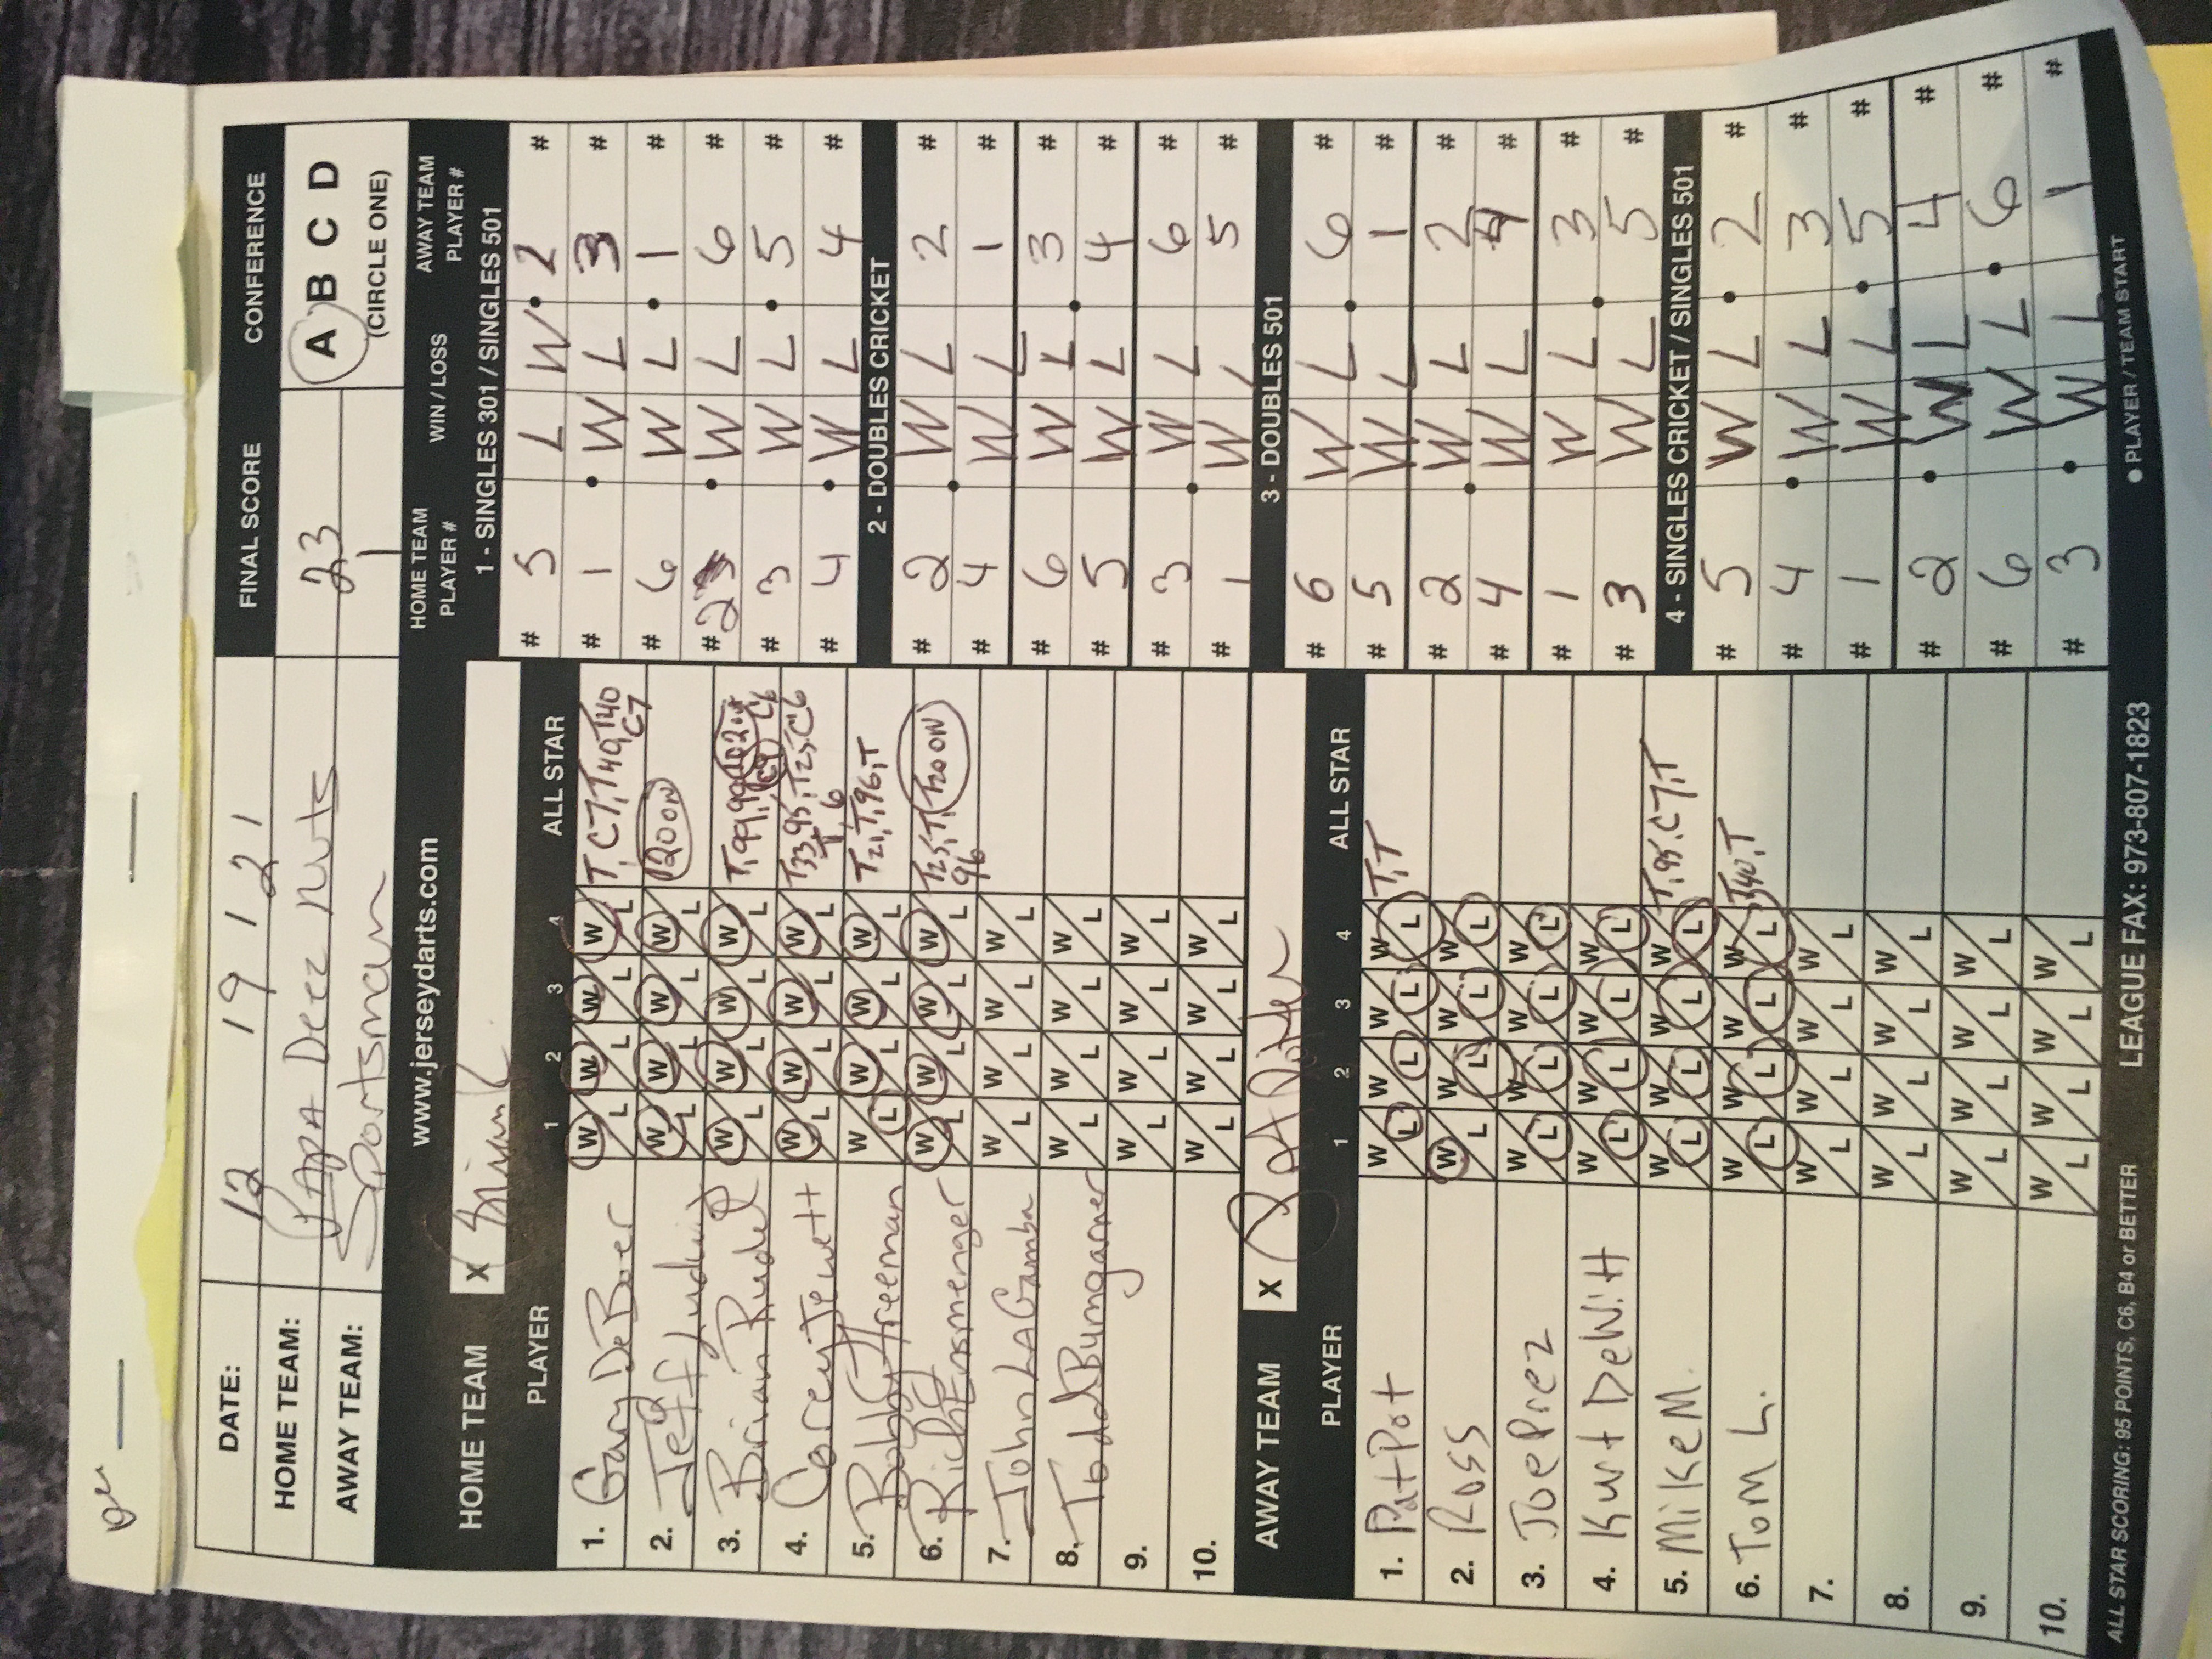 DATE: 12 19 121
HOME TEAM: PAPA Deez Nuts
AWAY TEAM: Sportsman
FINAL SCORE
23
1
CONFERENCE
A B C D
(CIRCLE ONE)
www.jerseydarts.com
HOME TEAM X
PLAYER 1 2 3 4 ALL STAR
1. Gary DeBoer W L W L W L W L T, C7, T40, T140
C7
2. Jeff Ludwig W L W L W L W L 120 ON
3. Brian Rudel W L W L W L W L T, 99, 99, 102 out
C9 C6
4. Corey Jewett W L W L W L W L T33, 95, T, T25, C6
T 6
5. Bobby Freeman W L W L W L W L T21, T, 96, T
6. Rich Ensmenger W L W L W L W L T25, T, T120 ON
96
7. John LAGamba W L W L W L W L
8. Todd Bumgarner W L W L W L W L
9. W L W L W L W L
10. W L W L W L W L
AWAY TEAM X
PLAYER 1 2 3 4 ALL STAR
1. Pat Pot W L W L W L W L T, T
2. Ross W L W L W L W L
3. Joe Prez W L W L W L W L
4. Kurt DeWitt W L W L W L W L
5. Mike M. W L W L W L W L T, 95, C7, T
6. Tom L. W L W L W L W L T40, T
7. W L W L W L W L
8. W L W L W L W L
9. W L W L W L W L
10. W L W L W L W L
HOME TEAM PLAYER # WIN / LOSS AWAY TEAM PLAYER #
1 - SINGLES 301 / SINGLES 501
# 5 L W 2 #
# 1 W L 3 #
# 6 W L 1 #
# 2 W L 6 #
# 3 W L 5 #
# 4 W L 4 #
2 - DOUBLES CRICKET
# 2 W L 2 #
# 4 W L 1 #
# 6 W L 3 #
# 5 W L 4 #
# 3 W L 6 #
# 1 W L 5 #
3 - DOUBLES 501
# 6 W L 6 #
# 5 W L 1 #
# 2 W L 2 #
# 4 W L 4 #
# 1 W L 3 #
# 3 W L 5 #
4 - SINGLES CRICKET / SINGLES 501
# 5 W L 2 #
# 4 W L 3 #
# 1 W L 5 #
# 2 W L 4 #
# 6 W L 6 #
# 3 W L 1 #
ALL STAR SCORING: 95 POINTS, C6, B4 or BETTER LEAGUE FAX: 973-807-1823 ● PLAYER / TEAM START